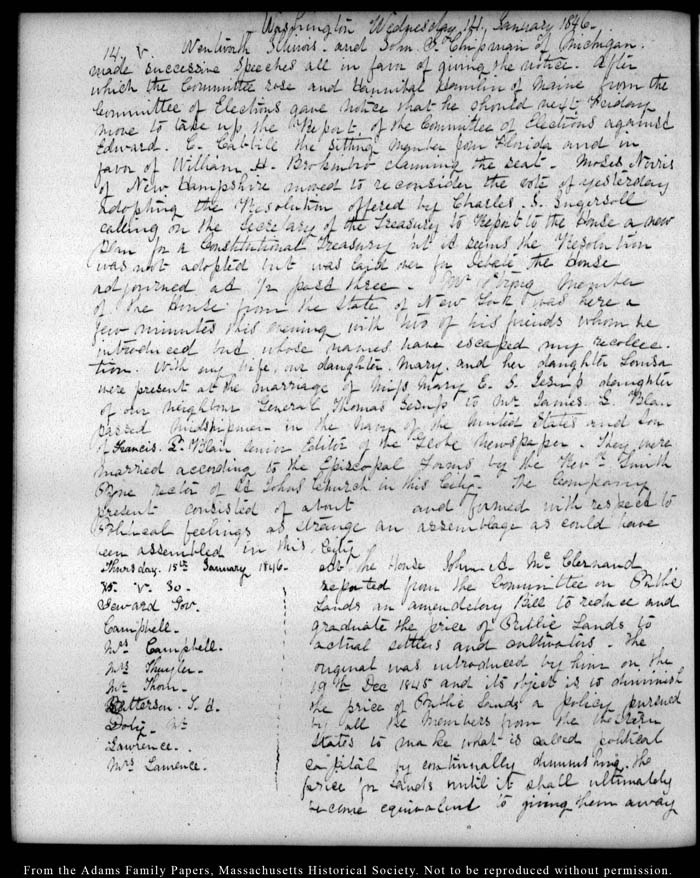 Washington Wednesday 14. January 1846.
14. V. Wentworth Illinois. and John S. Chipman of Michigan.
made successive Speeches all in favor of giving the notice. After
which the Committee rose and Hannibal Hamlin of Maine from the
Committee of Elections gave notice that he should next Friday
move to take up the Report, of the Committee of Elections against
Edward. C. Cabbill the sitting member from Florida and in
favor of William H. Brokinbro claiming the seat. Moses Norris
of New Hampshire moved to reconsider the vote of yesterday
adopting the Resolution offered by Charles. J. Ingersoll
calling on the Secretary of the Treasury to Report to the House a new
Plan for a Constitutional Treasury but it seems the Resolution
was not adopted but was laid over for Debate the House
adjourned at 1/2 past three. Mr Strong member
of the House from the State of New York was here a
few minutes this evening with two of his friends whom he
introduced but whose names have escaped my recollec-
tion. With my wife, our daughter. Mary. and her daughter Louisa
were present at the marriage of Miss Mary E. S. Jesup daughter
of our neighbour General Thomas Jesup to Mr James. L. Blair
passed Midshipman in the Navy of the United States and son
of Francis. P. Blair senior Editor of the Globe Newspaper. They were
married according to the Episcopal Forms by the Revd Smith
Pyne rector of St Johns Church in this City. The Company
present consisted of about and formed with respect to
Political feelings as strange an assemblage as could have
been assembled in this City
Thursday. 15th January 1846.
V. 30.
Seward Gov.
Campbell.
Mrs Campbell.
Mrs Shuyler.
Mr Thom.
Patterson. T. H.
Doty. Mr
Lawrence.
Mrs Lawrence.
At the House John A. McClernand
reported from the Committee on Public
Lands an amendatory Bill to reduce and
graduate the price of Public Lands to
actual settlers and cultivators. The
original was introduced by him on the
19th Dec 1845 and its object is to diminish
the price of Public Lands a policy pursued
by all the members from the Western
States to make what is called political
capital by continually diminishing the
price for Lands until it shall ultimately
become equivalent to giving them away
From the Adams Family Papers, Massachusetts Historical Society. Not to be reproduced without permission.